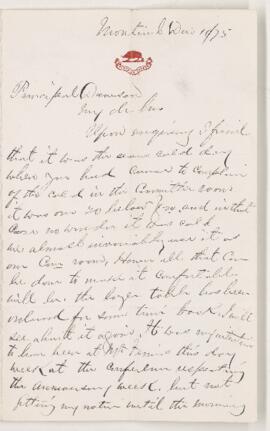 Montreal Dec 10/75
Principal Dawson
My dr Sir
Upon enquiring I find
that it was the same cold day
when you had cause to complain
of the cold in the Committee room
it was one 20 below zero and in that
case no wonder it was cold
we almost invariably use it as
our Com room, However all that can
be done to make it comfortable
will be. the larger table has been
ordered for some time back. I will
see about it again. It was my intention
to have been at this day
week at the Conference respecting
the week, but not
getting my notice until the morning